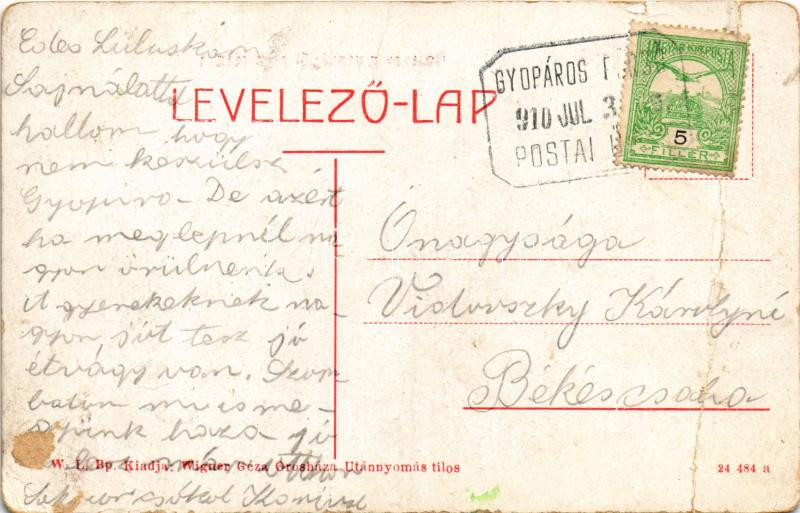 Edes Luluskám
Sajnálattal
hallom hogy
nem készülsz
Gyopáro- De azért
ha meglepnél na-
gyon örülnénk.
A gyerekeknek na-
gyon jót tesz jó
étvágy van. Szom-
baton mi is me-
gyünk haza jó
lesz már otthon
Sokszor csókol
LEVELEZŐ-LAP
GYOPÁROS F
910 JUL 3
POSTAI
MAGYAR KIR. POSTA
5
FILLÉR
Őnagysága
Vidovszky Károlyné
Békéscsaba
W. L. Bp. Kiadja: Wigner Géza Orosháza Utánnyomás tilos
24 484 a